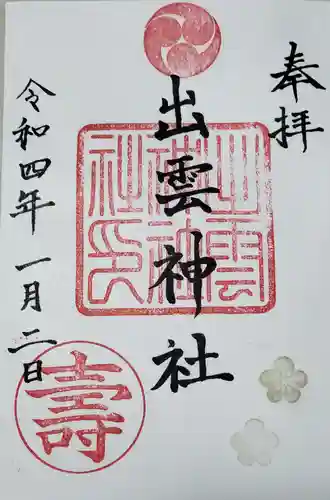 奉拝
出雲神社
令和四年一月二日
出雲神社印
壽